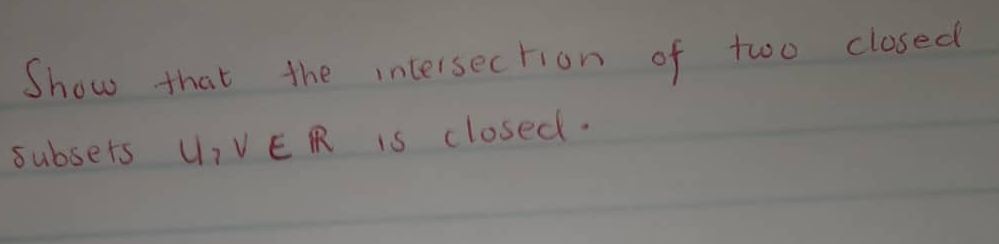 Show that the intersection of two closed
subsets U, V ∈ ℝ is closed.